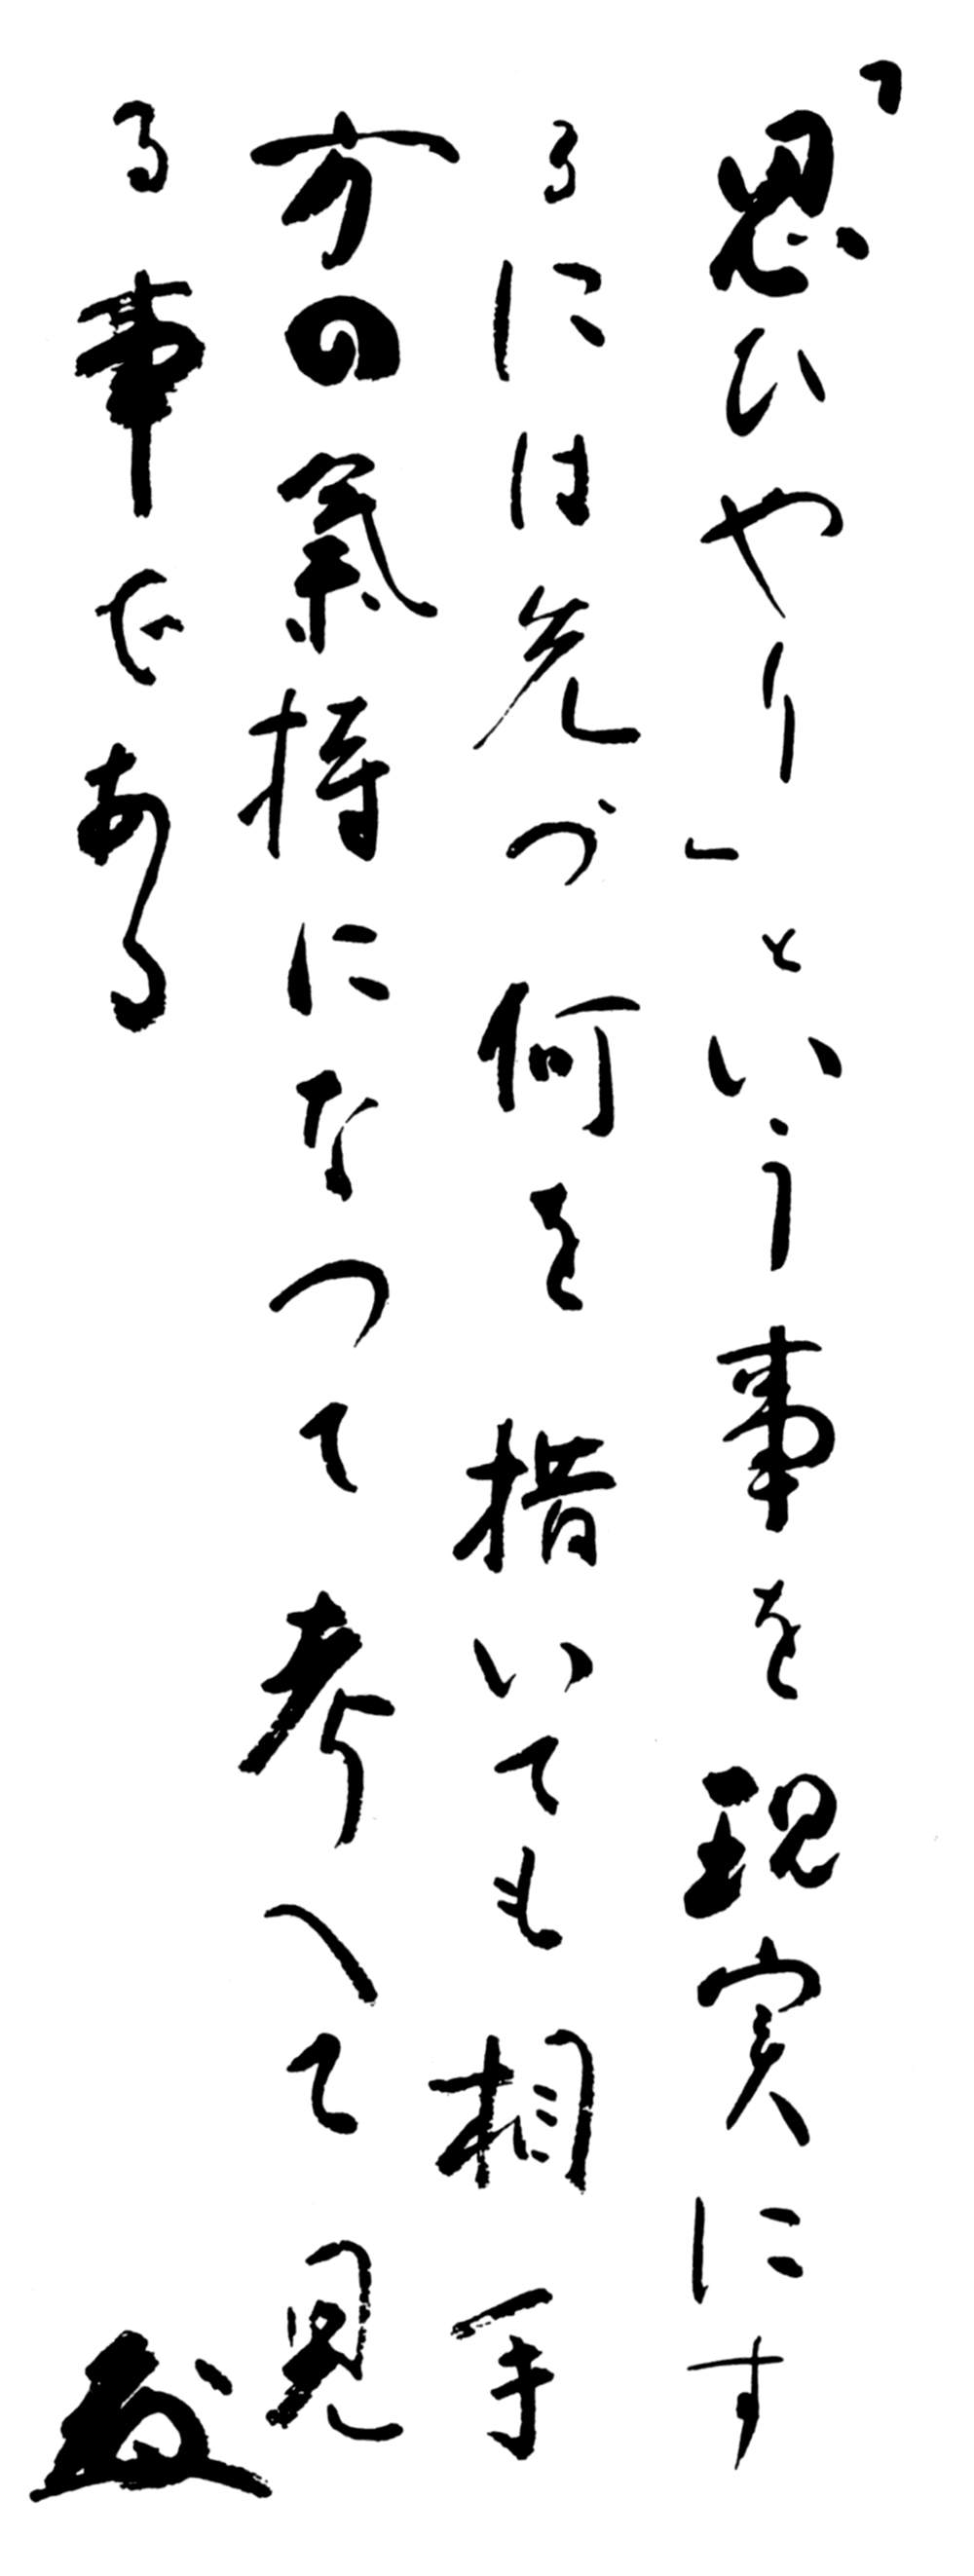 「思ひやり」という事を現実にす
るには先づ何を措いても相手
方の氣持になつて考へて見
る事である